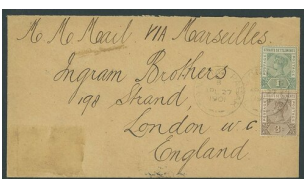 R M Mail VIA Marseilles.
Ingram Brothers
198 Strand,
London W C
England.